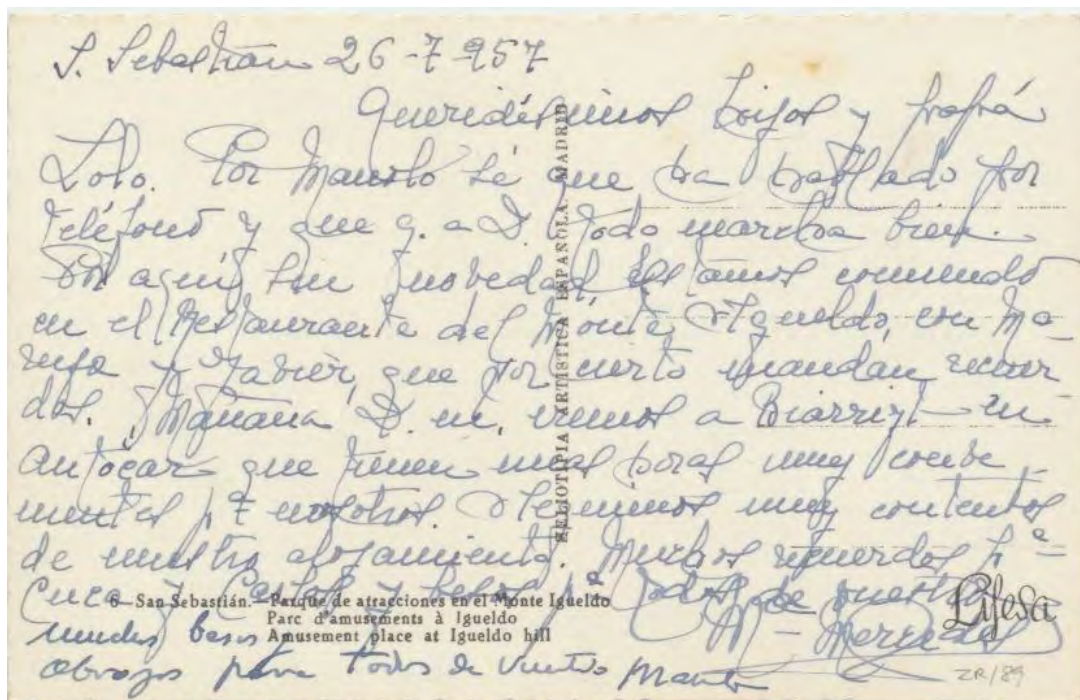 S. Sebastián 26-7-957
Queridísimos hijos y papá
Lolo. Por Manolo sé que ha hablado por
teléfono y que g. a D. todo marcha bien.
Por aquí sin novedad. Estamos comiendo
en el Restaurante del Monte Igueldo, con Ma-
y Javier, que por cierto mandan recuer
dos. Mañana D. m. iremos a Biarritz en
autocar que tienen unas horas muy conve-
nientes pª nosotros. Seguimos muy contentos
de nuestro alojamiento. Muchos recuerdos pª
Cuca y Carlos y besos pª todos de vuestra
Mercedes
muchos besos
abrazos para todos de vuestro
HELIOTIPIA ARTISTICA ESPAÑOLA - MADRID
6—San Sebastián.—Parque de atracciones en el Monte Igueldo
Parc d'amusements à Igueldo
Amusement place at Igueldo hill
Lifesa
ZR/89